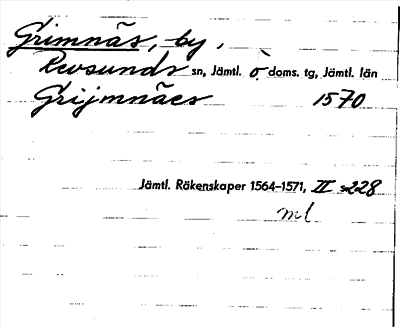 Grimnäs, by,
Revsunds sn, Jämtl. ö. doms. tg, Jämtl. län
Grijmnäes 1570
Jämtl. Räkenskaper 1564–1571, II s. 228
ml